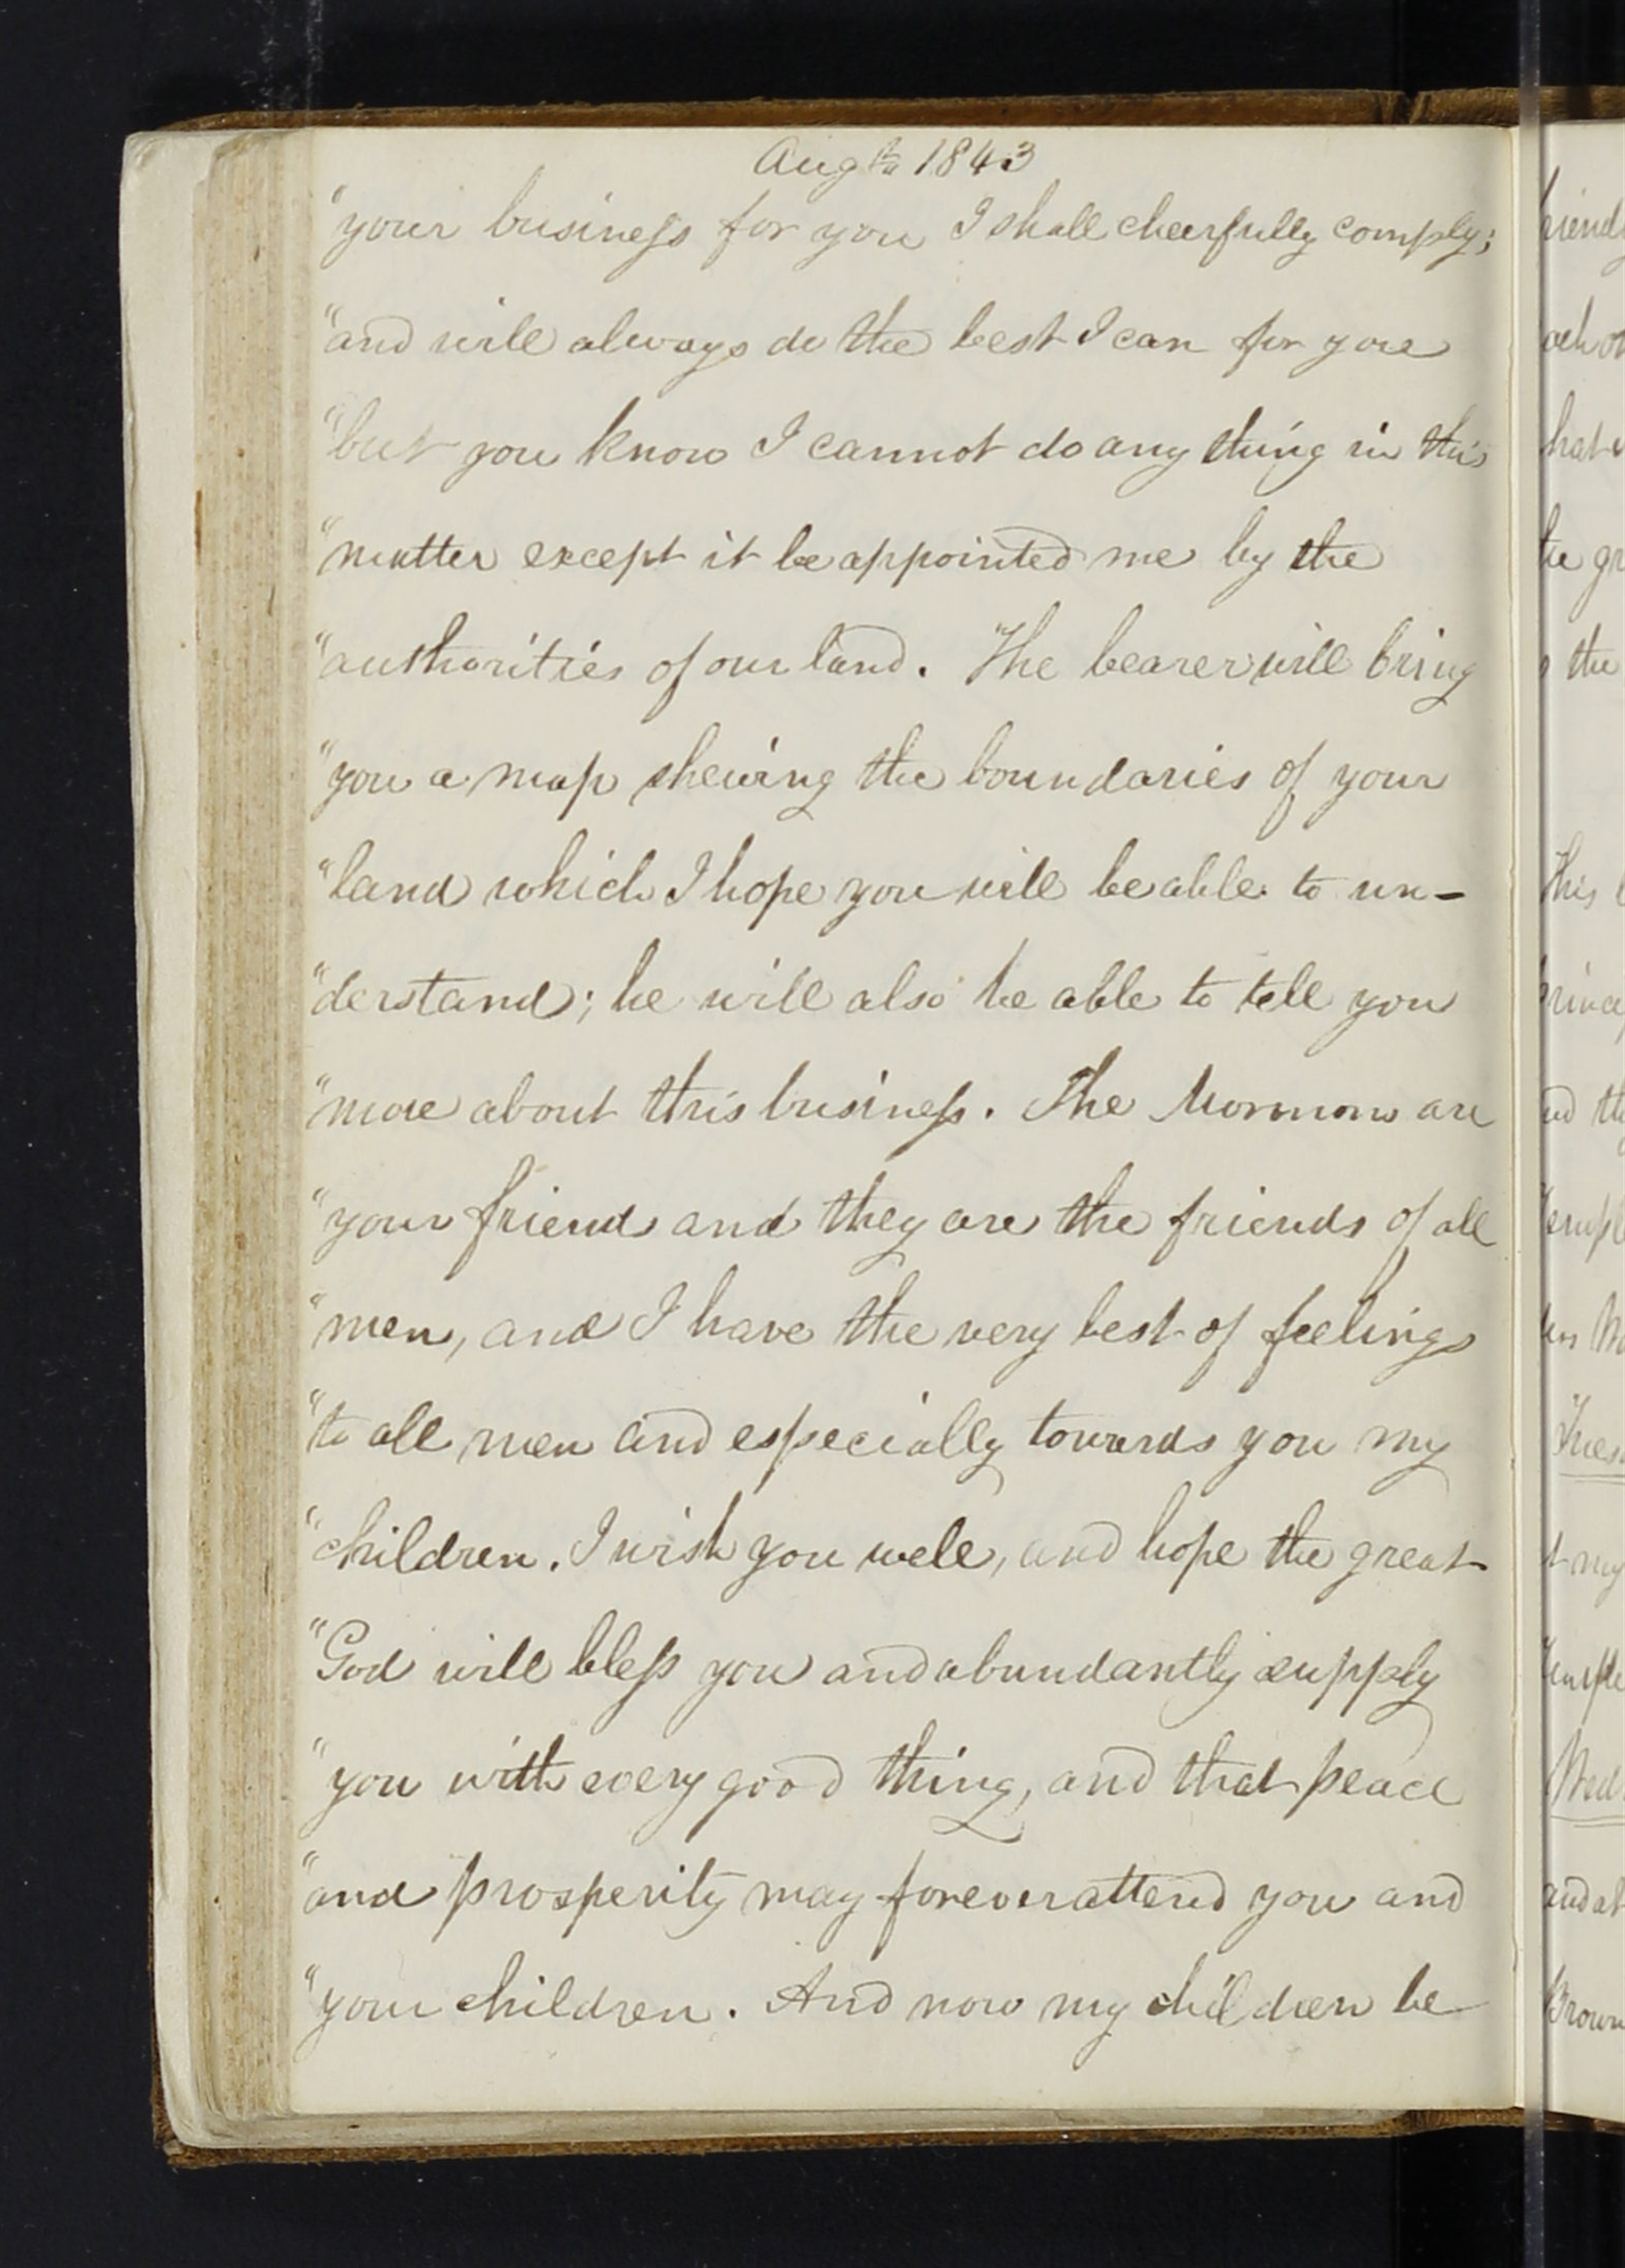 Augt. 1843
"your business for you I shall cheerfully comply;
"and will always do the best I can for you
"but you know I cannot do any thing in this
"matter except it be appointed me by the
"authorities of our land. The bearer will bring
"you a map shewing the boundaries of your
"land which I hope you will be able to un-
"derstand; he will also be able to tell you
"more about this business. The Mormons are
"your friends and they are the friends of all
"men, and I have the very best of feelings
"to all men and especially towards you my
"children. I wish you well, and hope the great
"God will bless you and abundantly supply
"you with every good thing, and that peace
"and prosperity may forever attend you and
"your children. And now my children be